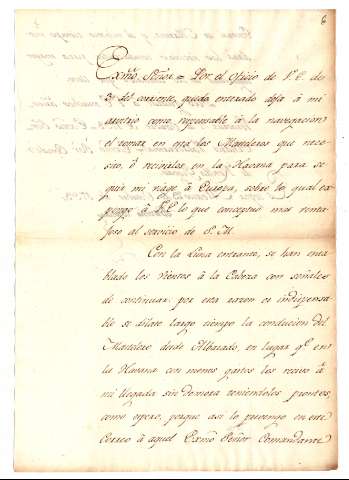 6
Exmo. Señor = Por el oficio de V.E. de
del corriente, quedo enterado deja à mi
arvitrio como responsable à la navegacion
el tomar en esta los Marineros que nece-
sito, ò recivirlos en la Havana para se-
guir mi viage à Europa, sobre lo qual ex-
pongo à V.E. lo que conceptuo mas venta-
joso al servicio de S. M.
Con la Luna entrante, se han enta-
blado los vientos à la Cabeza con señales
de continuar: por esta razon es indispensa-
ble se dilate largo tiempo la conducion del
desde Albarado, en lugar qe. en
la Havana con menos gastos los recivo à
mi llegada sin demora teniendolos prontos,
como espero, porque asi lo prevengo en este
Correo à aquel Exmo Señor Comandante